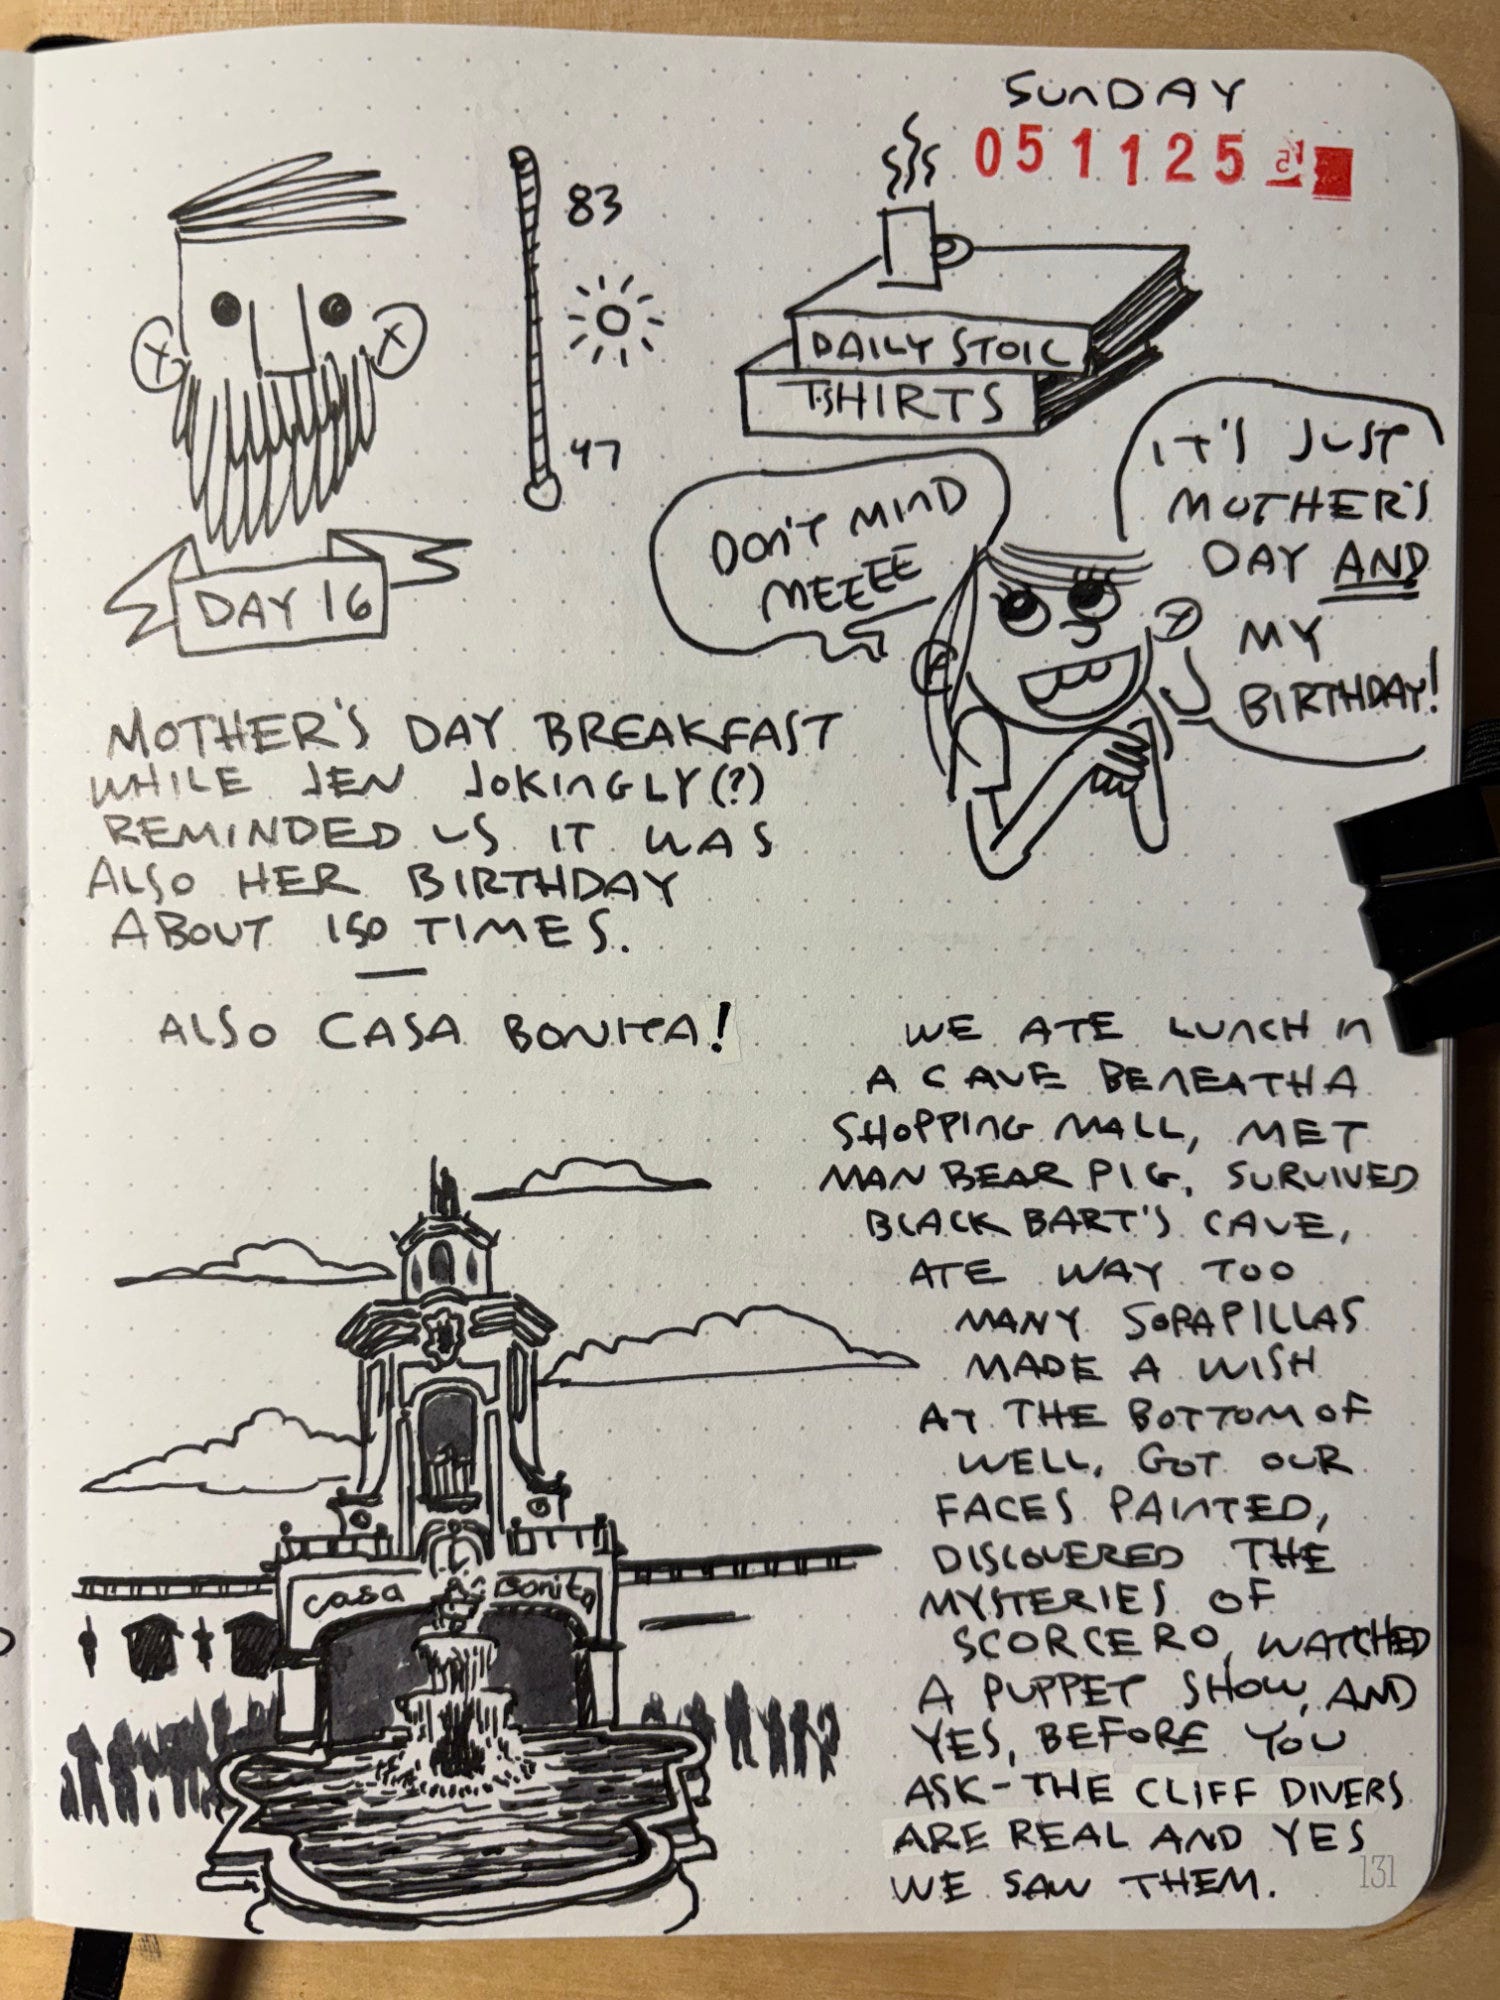 SUNDAY
051125
83
47
DAILY STOIC
T-SHIRTS
DAY 16
DON'T MIND
MEEEE
IT'S JUST
MOTHER'S
DAY AND
MY
BIRTHDAY!
MOTHER'S DAY BREAKFAST
WHILE JEN JOKINGLY(?)
REMINDED US IT WAS
ALSO HER BIRTHDAY
ABOUT 150 TIMES.
ALSO CASA BONITA!
casa Bonita
WE ATE LUNCH IN
A CAVE BENEATH A
SHOPPING MALL, MET
MAN BEAR PIG, SURVIVED
BLACK BART'S CAVE,
ATE WAY TOO
MANY SOPAPILLAS
MADE A WISH
AT THE BOTTOM OF
WELL, GOT OUR
FACES PAINTED,
DISCOVERED THE
MYSTERIES OF
SCORCERO, WATCHED
A PUPPET SHOW, AND
YES, BEFORE YOU
ASK-THE CLIFF DIVERS
ARE REAL AND YES
WE SAW THEM.
131